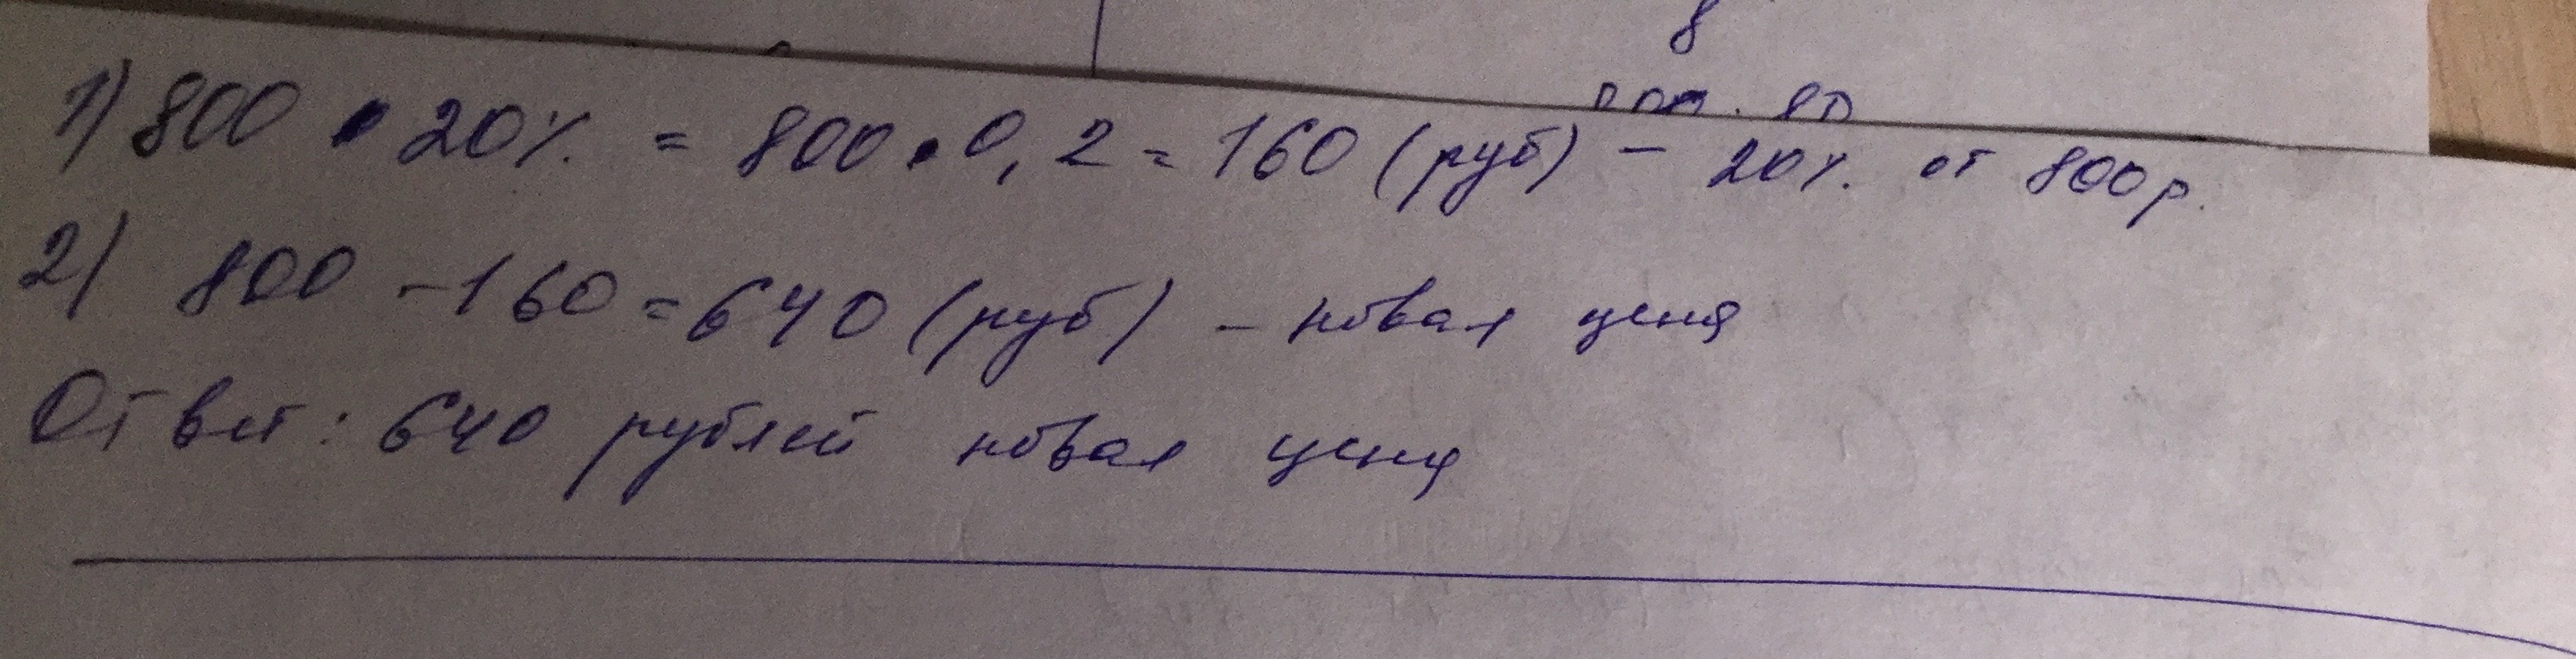 8
1) 800 • 20% = 800 • 0,2 = 160 (руб) – 20% от 800р.
2) 800 – 160 = 640 (руб) – новая цена
Ответ: 640 рублей новая цена